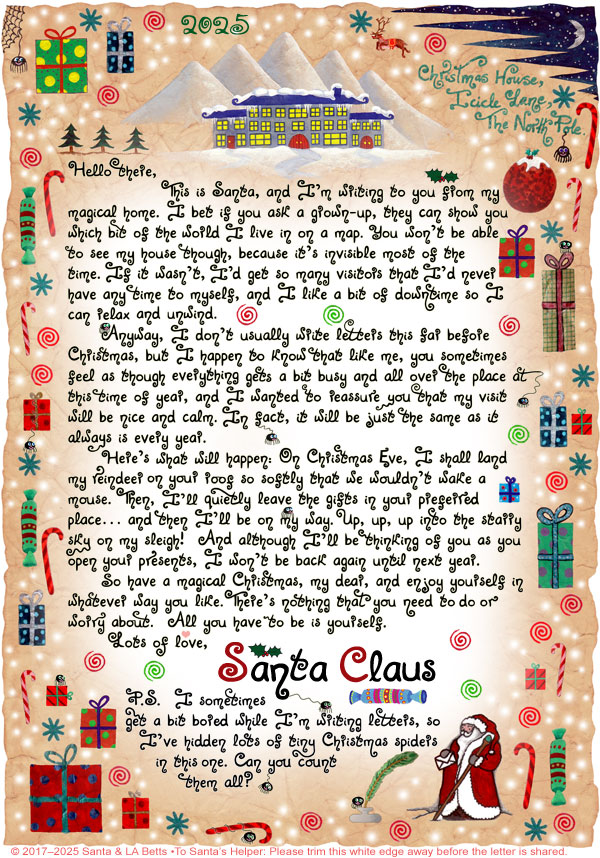 2025
Christmas House,
Icicle Lane,
The North Pole.
Hello there,
This is Santa, and I'm writing to you from my
magical home. I bet if you ask a grown-up, they can show you
which bit of the world I live in on a map. You won't be able
to see my house though, because it's invisible most of the
time. If it wasn't, I'd get so many visitors that I'd never
have any time to myself, and I like a bit of downtime so I
can relax and unwind.
Anyway, I don't usually write letters this far before
Christmas, but I happen to know that like me, you sometimes
feel as though everything gets a bit busy and all over the place at
this time of year, and I wanted to reassure you that my visit
will be nice and calm. In fact, it will be just the same as it
always is every year.
Here's what will happen: On Christmas Eve, I shall land
my reindeer on your roof so softly that we wouldn't wake a
mouse. Then, I'll quietly leave the gifts in your preferred
place... and then I'll be on my way. Up, up, up into the starry
sky on my sleigh! And although I'll be thinking of you as you
open your presents, I won't be back again until next year.
So have a magical Christmas, my dear, and enjoy yourself in
whatever way you like. There's nothing that you need to do or
worry about. All you have to be is yourself.
Lots of love,
Santa Claus
P.S. I sometimes
get a bit bored while I'm writing letters, so
I've hidden lots of tiny Christmas spiders
in this one. Can you count
them all?
© 2017–2025 Santa & LA Betts •To Santa's Helper: Please trim this white edge away before the letter is shared.